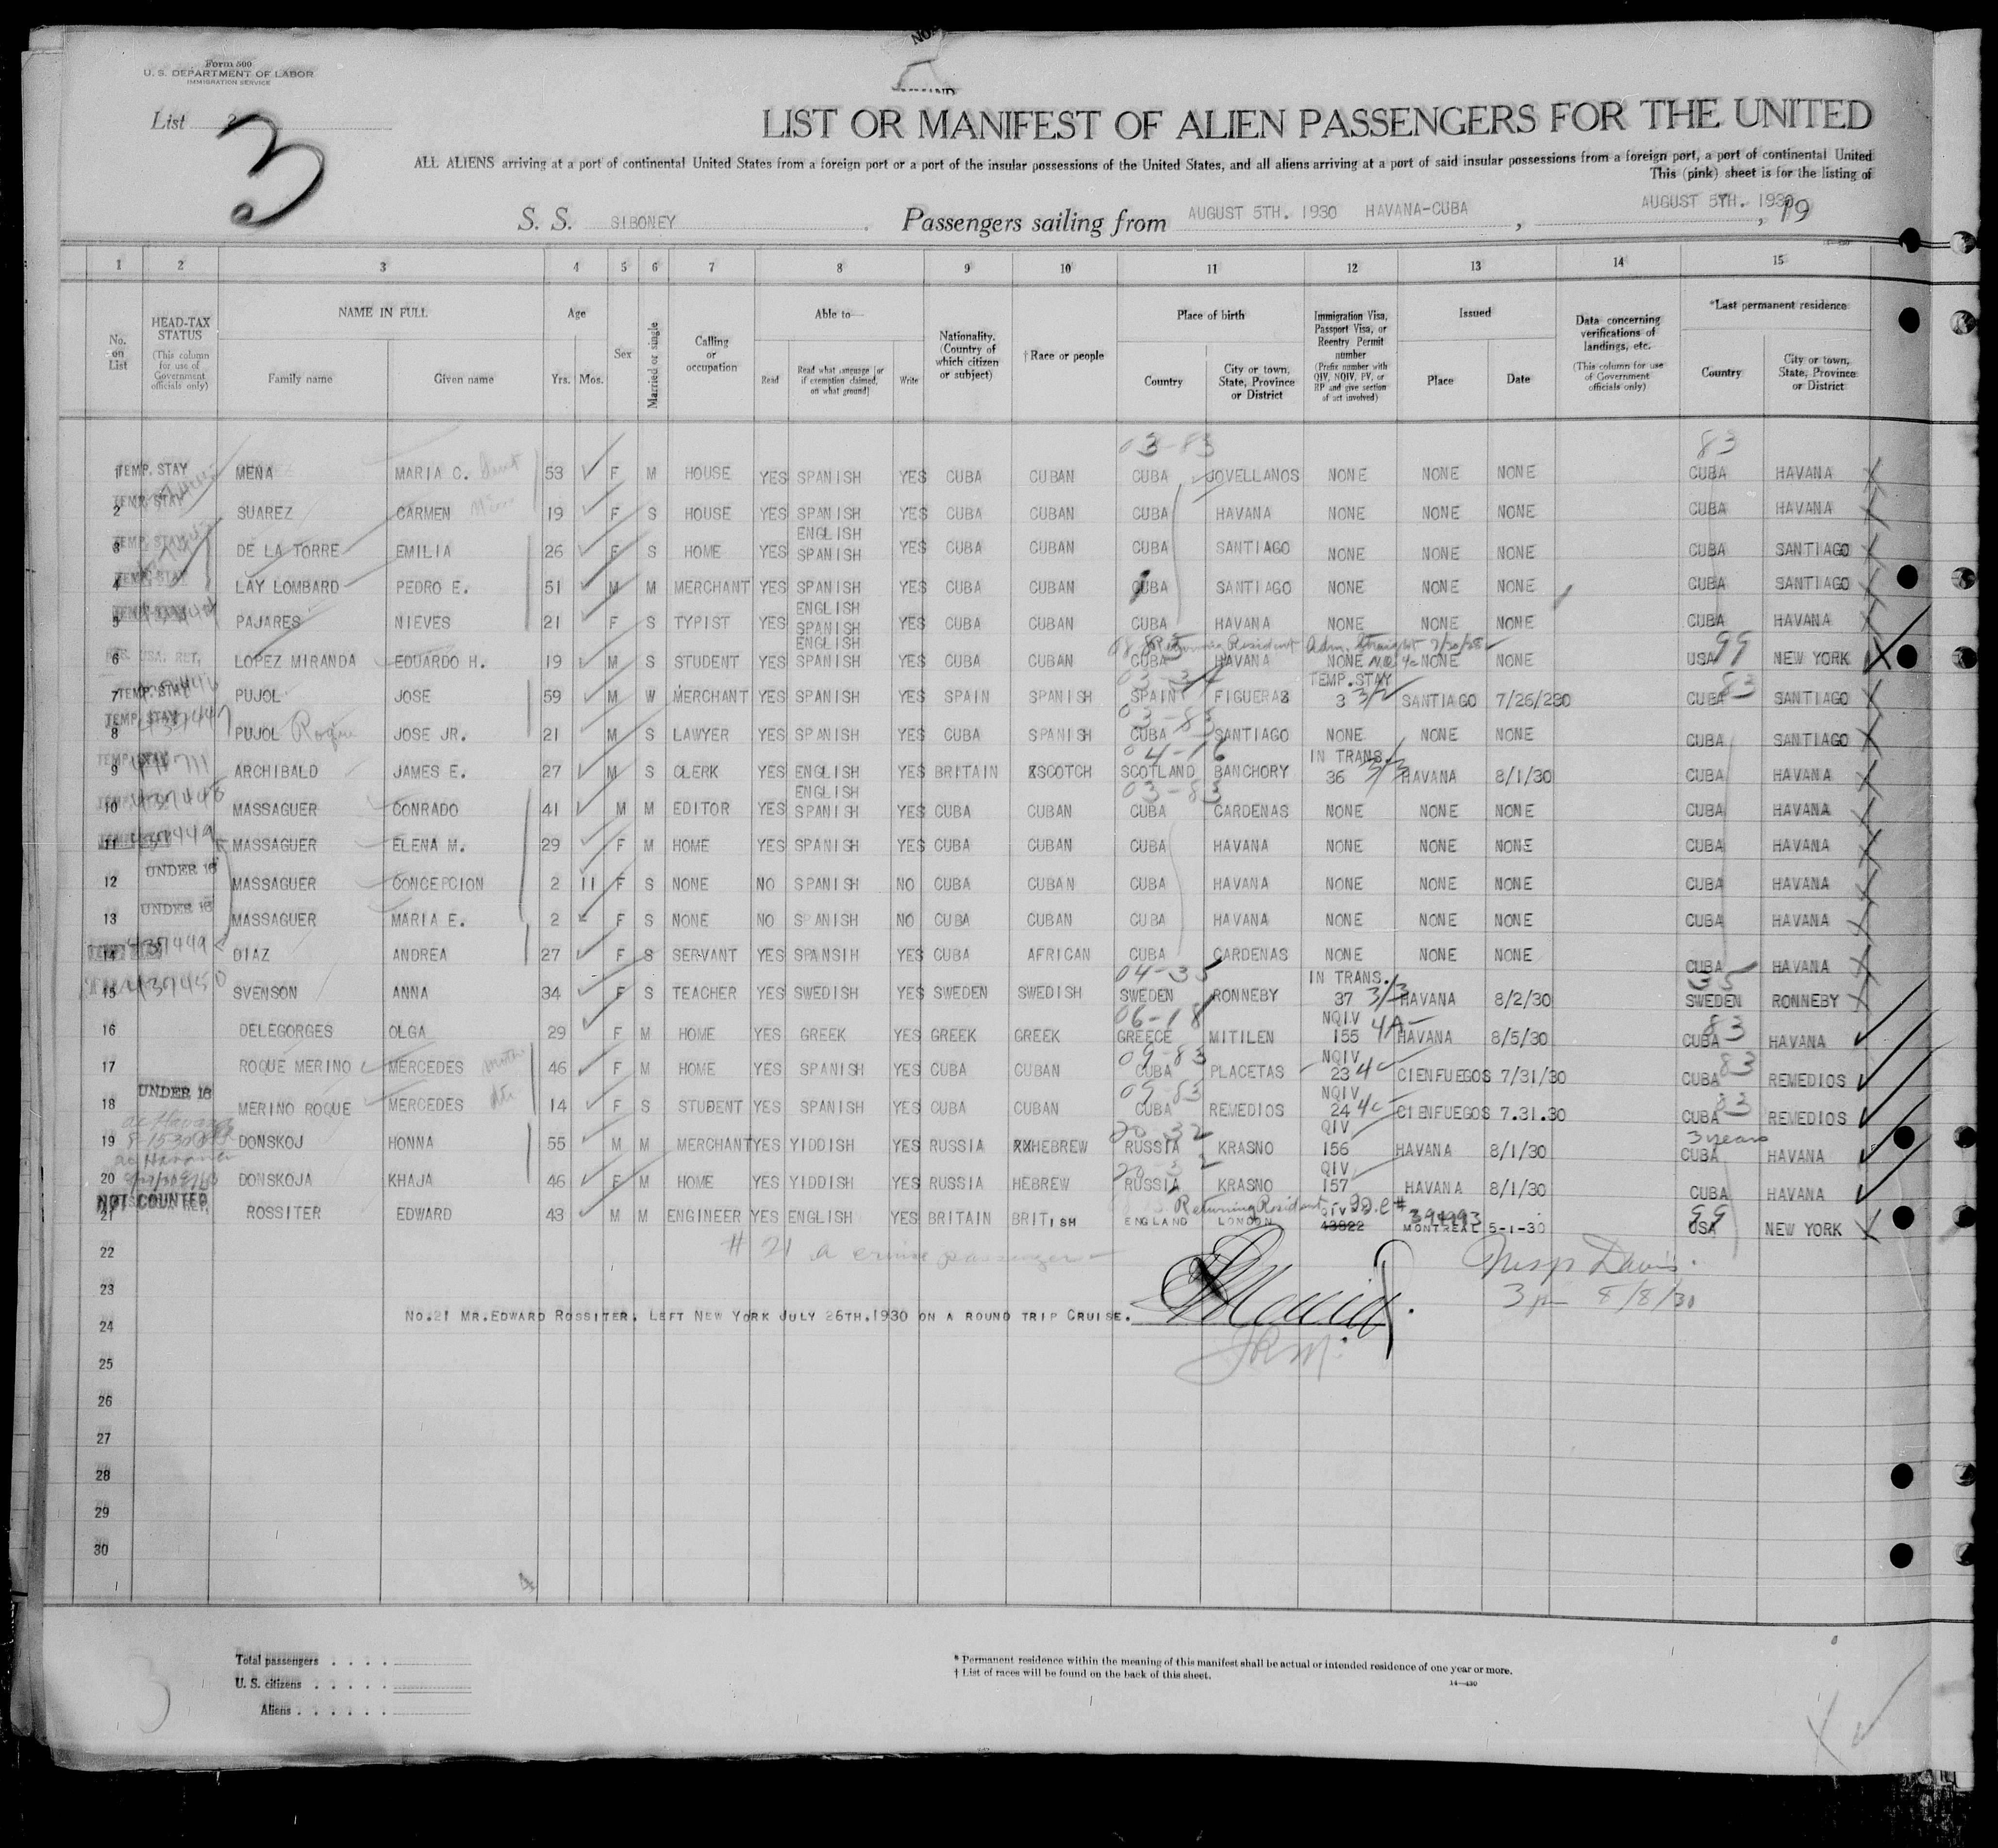 Form 500
U. S. DEPARTMENT OF LABOR
IMMIGRATION SERVICE
NO.
List 2
3
LIST OR MANIFEST OF ALIEN PASSENGERS FOR THE UNITED
ALL ALIENS arriving at a port of continental United States from a foreign port or a port of the insular possessions of the United States, and all aliens arriving at a port of said insular possessions from a foreign port, a port of continental United
This (pink) sheet is for the listing of
S. S. SIBONEY Passengers sailing from AUGUST 5TH. 1930 HAVANA-CUBA , AUGUST 5TH. 1930 , 19
1 2 3 4 5 6 7 8 9 10 11 12 13 14 15
No. on List
HEAD-TAX STATUS (This column for use of Government officials only)
NAME IN FULL
Family name Given name
Age
Yrs. Mos.
Sex
Married or single
Calling or occupation
Able to—
Read Read what language [or if exemption claimed, on what ground] Write
Nationality. (Country of which citizen or subject)
†Race or people
Place of birth
Country City or town, State, Province or District
Immigration Visa, Passport Visa, or Reentry Permit number (Prefix number with QIV, NQIV, PV, or RP and give section of act involved)
Issued
Place Date
Data concerning verifications of landings, etc. (This column for use of Government officials only)
*Last permanent residence
Country City or town, State, Province or District
03-83 83
1 TEMP. STAY MENA MARIA C. 53 F M HOUSE YES SPANISH YES CUBA CUBAN CUBA JOVELLANOS NONE NONE NONE CUBA HAVANA
2 TEMP. STAY SUAREZ CARMEN 19 F S HOUSE YES SPANISH YES CUBA CUBAN CUBA HAVANA NONE NONE NONE CUBA HAVANA
3 TEMP. STAY DE LA TORRE EMILIA 26 F S HOME YES ENGLISH SPANISH YES CUBA CUBAN CUBA SANTIAGO NONE NONE NONE CUBA SANTIAGO
4 TEMP. STAY LAY LOMBARD PEDRO E. 51 M M MERCHANT YES SPANISH YES CUBA CUBAN CUBA SANTIAGO NONE NONE NONE CUBA SANTIAGO
5 PAJARES NIEVES 21 F S TYPIST YES ENGLISH SPANISH YES CUBA CUBAN CUBA HAVANA NONE NONE NONE CUBA HAVANA
Returning Resident Adm. Straight
6 USA. RET. LOPEZ MIRANDA EDUARDO H. 19 M S STUDENT YES ENGLISH SPANISH YES CUBA CUBAN CUBA HAVANA NONE NONE NONE USA 99 NEW YORK
7 TEMP. STAY PUJOL JOSE 59 M W MERCHANT YES SPANISH YES SPAIN SPANISH SPAIN FIGUERAS TEMP. STAY 3 3/2 SANTIAGO 7/26/230 CUBA 83 SANTIAGO
03-83
8 TEMP. STAY PUJOL Roque JOSE JR. 21 M S LAWYER YES SPANISH YES CUBA SPANISH CUBA SANTIAGO NONE NONE NONE CUBA SANTIAGO
04-16
9 ARCHIBALD JAMES E. 27 M S CLERK YES ENGLISH YES BRITAIN XSCOTCH SCOTLAND BANCHORY IN TRANS. 36 3/3 HAVANA 8/1/30 CUBA HAVANA
03-83
10 MASSAGUER CONRADO 41 M M EDITOR YES ENGLISH SPANISH YES CUBA CUBAN CUBA CARDENAS NONE NONE NONE CUBA HAVANA
11 MASSAGUER ELENA M. 29 F M HOME YES SPANISH YES CUBA CUBAN CUBA HAVANA NONE NONE NONE CUBA HAVANA
12 UNDER 16 MASSAGUER CONCEPCION 2 11 F S NONE NO SPANISH NO CUBA CUBAN CUBA HAVANA NONE NONE NONE CUBA HAVANA
13 UNDER 16 MASSAGUER MARIA E. 2 F S NONE NO SPANISH NO CUBA CUBAN CUBA HAVANA NONE NONE NONE CUBA HAVANA
14 DIAZ ANDREA 27 F S SERVANT YES SPANSIH YES CUBA AFRICAN CUBA CARDENAS NONE NONE NONE CUBA HAVANA
04-35 35
15 SVENSON ANNA 34 F S TEACHER YES SWEDISH YES SWEDEN SWEDISH SWEDEN RONNEBY IN TRANS. 37 3/3 HAVANA 8/2/30 SWEDEN RONNEBY
06-18 83
16 DELEGORGES OLGA 29 F M HOME YES GREEK YES GREEK GREEK GREECE MITILEN NQIV 155 4A- HAVANA 8/5/30 CUBA HAVANA
09-83 83
17 ROQUE MERINO MERCEDES 46 F M HOME YES SPANISH YES CUBA CUBAN CUBA PLACETAS NQIV 23 4c CIENFUEGOS 7/31/30 CUBA REMEDIOS
09-83 83
18 UNDER 16 MERINO ROQUE MERCEDES 14 F S STUDENT YES SPANISH YES CUBA CUBAN CUBA REMEDIOS NQIV 24 4c CIENFUEGOS 7.31.30 CUBA REMEDIOS
20-32 3 years
19 DONSKOJ HONNA 55 M M MERCHANT YES YIDDISH YES RUSSIA XXHEBREW RUSSIA KRASNO QIV 156 HAVANA 8/1/30 CUBA HAVANA
20-32
20 DONSKOJA KHAJA 46 F M HOME YES YIDDISH YES RUSSIA HEBREW RUSSIA KRASNO QIV 157 HAVANA 8/1/30 CUBA HAVANA
Returning Resident
21 NOT COUNTED ROSSITER EDWARD 43 M M ENGINEER YES ENGLISH YES BRITAIN BRITISH ENGLAND LONDON QIV 43922 394993 MONTREAL 5-1-30 USA 99 NEW YORK
22 # 21 a cruise passenger —
Insp Davis.
23
3 pm 8/8/30
No.21 MR.EDWARD ROSSITER. LEFT NEW YORK JULY 26TH.1930 ON A ROUND TRIP CRUISE.
24
25
26
27
28
29
30
4
3
Total passengers . . . .
U. S. citizens . . . . .
Aliens . . . . . .
* Permanent residence within the meaning of this manifest shall be actual or intended residence of one year or more.
† List of races will be found on the back of this sheet.
14—430